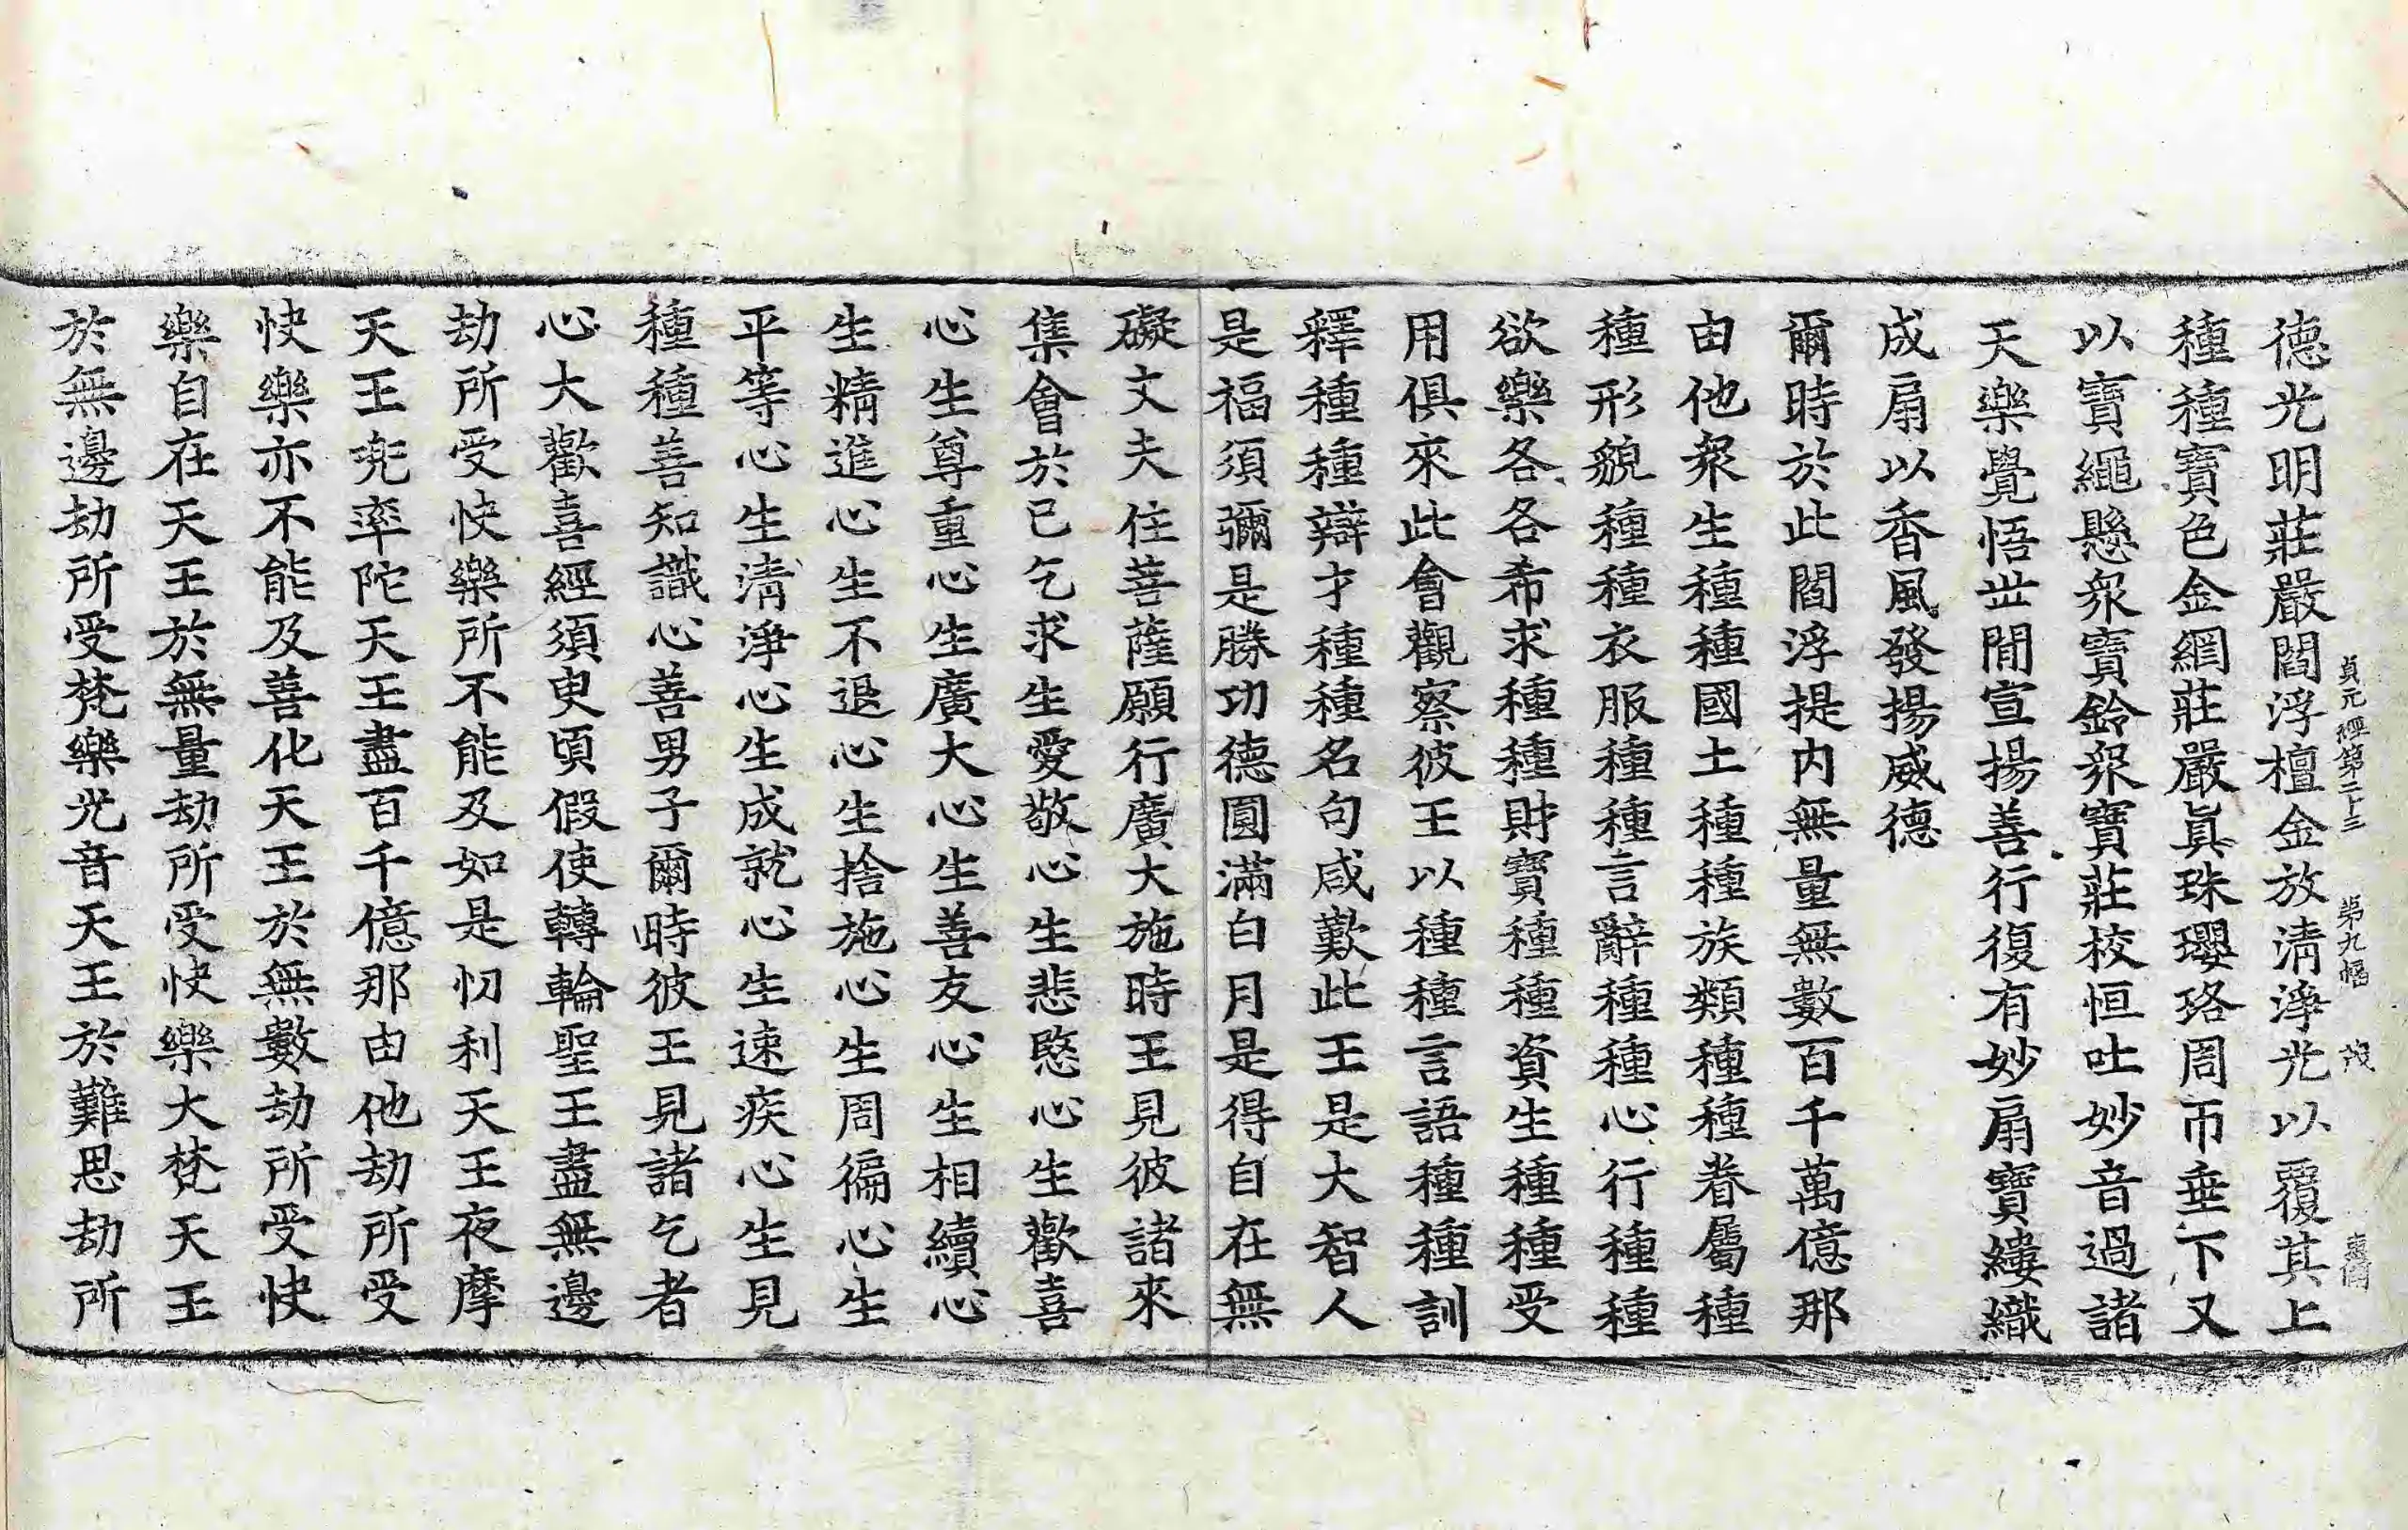 貞元經第二十三　第九幅　茂
德光明莊嚴閻浮檀金放清淨光以覆其上
種種寶色金網莊嚴眞珠瓔珞周帀垂下又
以寶繩懸衆寶鈴衆寶莊校恒吐妙音過諸
天樂覺悟丗間宣揚善行復有妙扇寶縷織
成扇以香風發揚威德
爾時於此閻浮提内無量無數百千萬億那
由他衆生種種國土種種族類種種眷屬種
種形貌種種衣服種種言辭種種心行種種
欲樂各各希求種種財寶種種資生種種受
用俱來此會觀察彼王以種種言語種種訓
釋種種辯才種種名句咸歎此王是大智人
是福須彌是勝功德圓滿白月是得自在無
礙丈夫住菩薩願行廣大施時王見彼諸來
集會於已乞求生愛敬心生悲愍心生歡喜
心生尊重心生廣大心生善友心生相續心
生精進心生不退心生捨施心生周徧心生
平等心生清淨心生成就心生速疾心生見
種種善知識心善男子爾時彼王見諸乞者
心大歡喜經須臾頃假使轉輪聖王盡無邊
劫所受快樂所不能及如是忉利天王夜摩
天王兜率陀天王盡百千億那由他劫所受
快樂亦不能及善化天王於無數劫所受快
樂自在天王於無量劫所受快樂大梵天王
於無邊劫所受梵樂光音天王於難思劫所